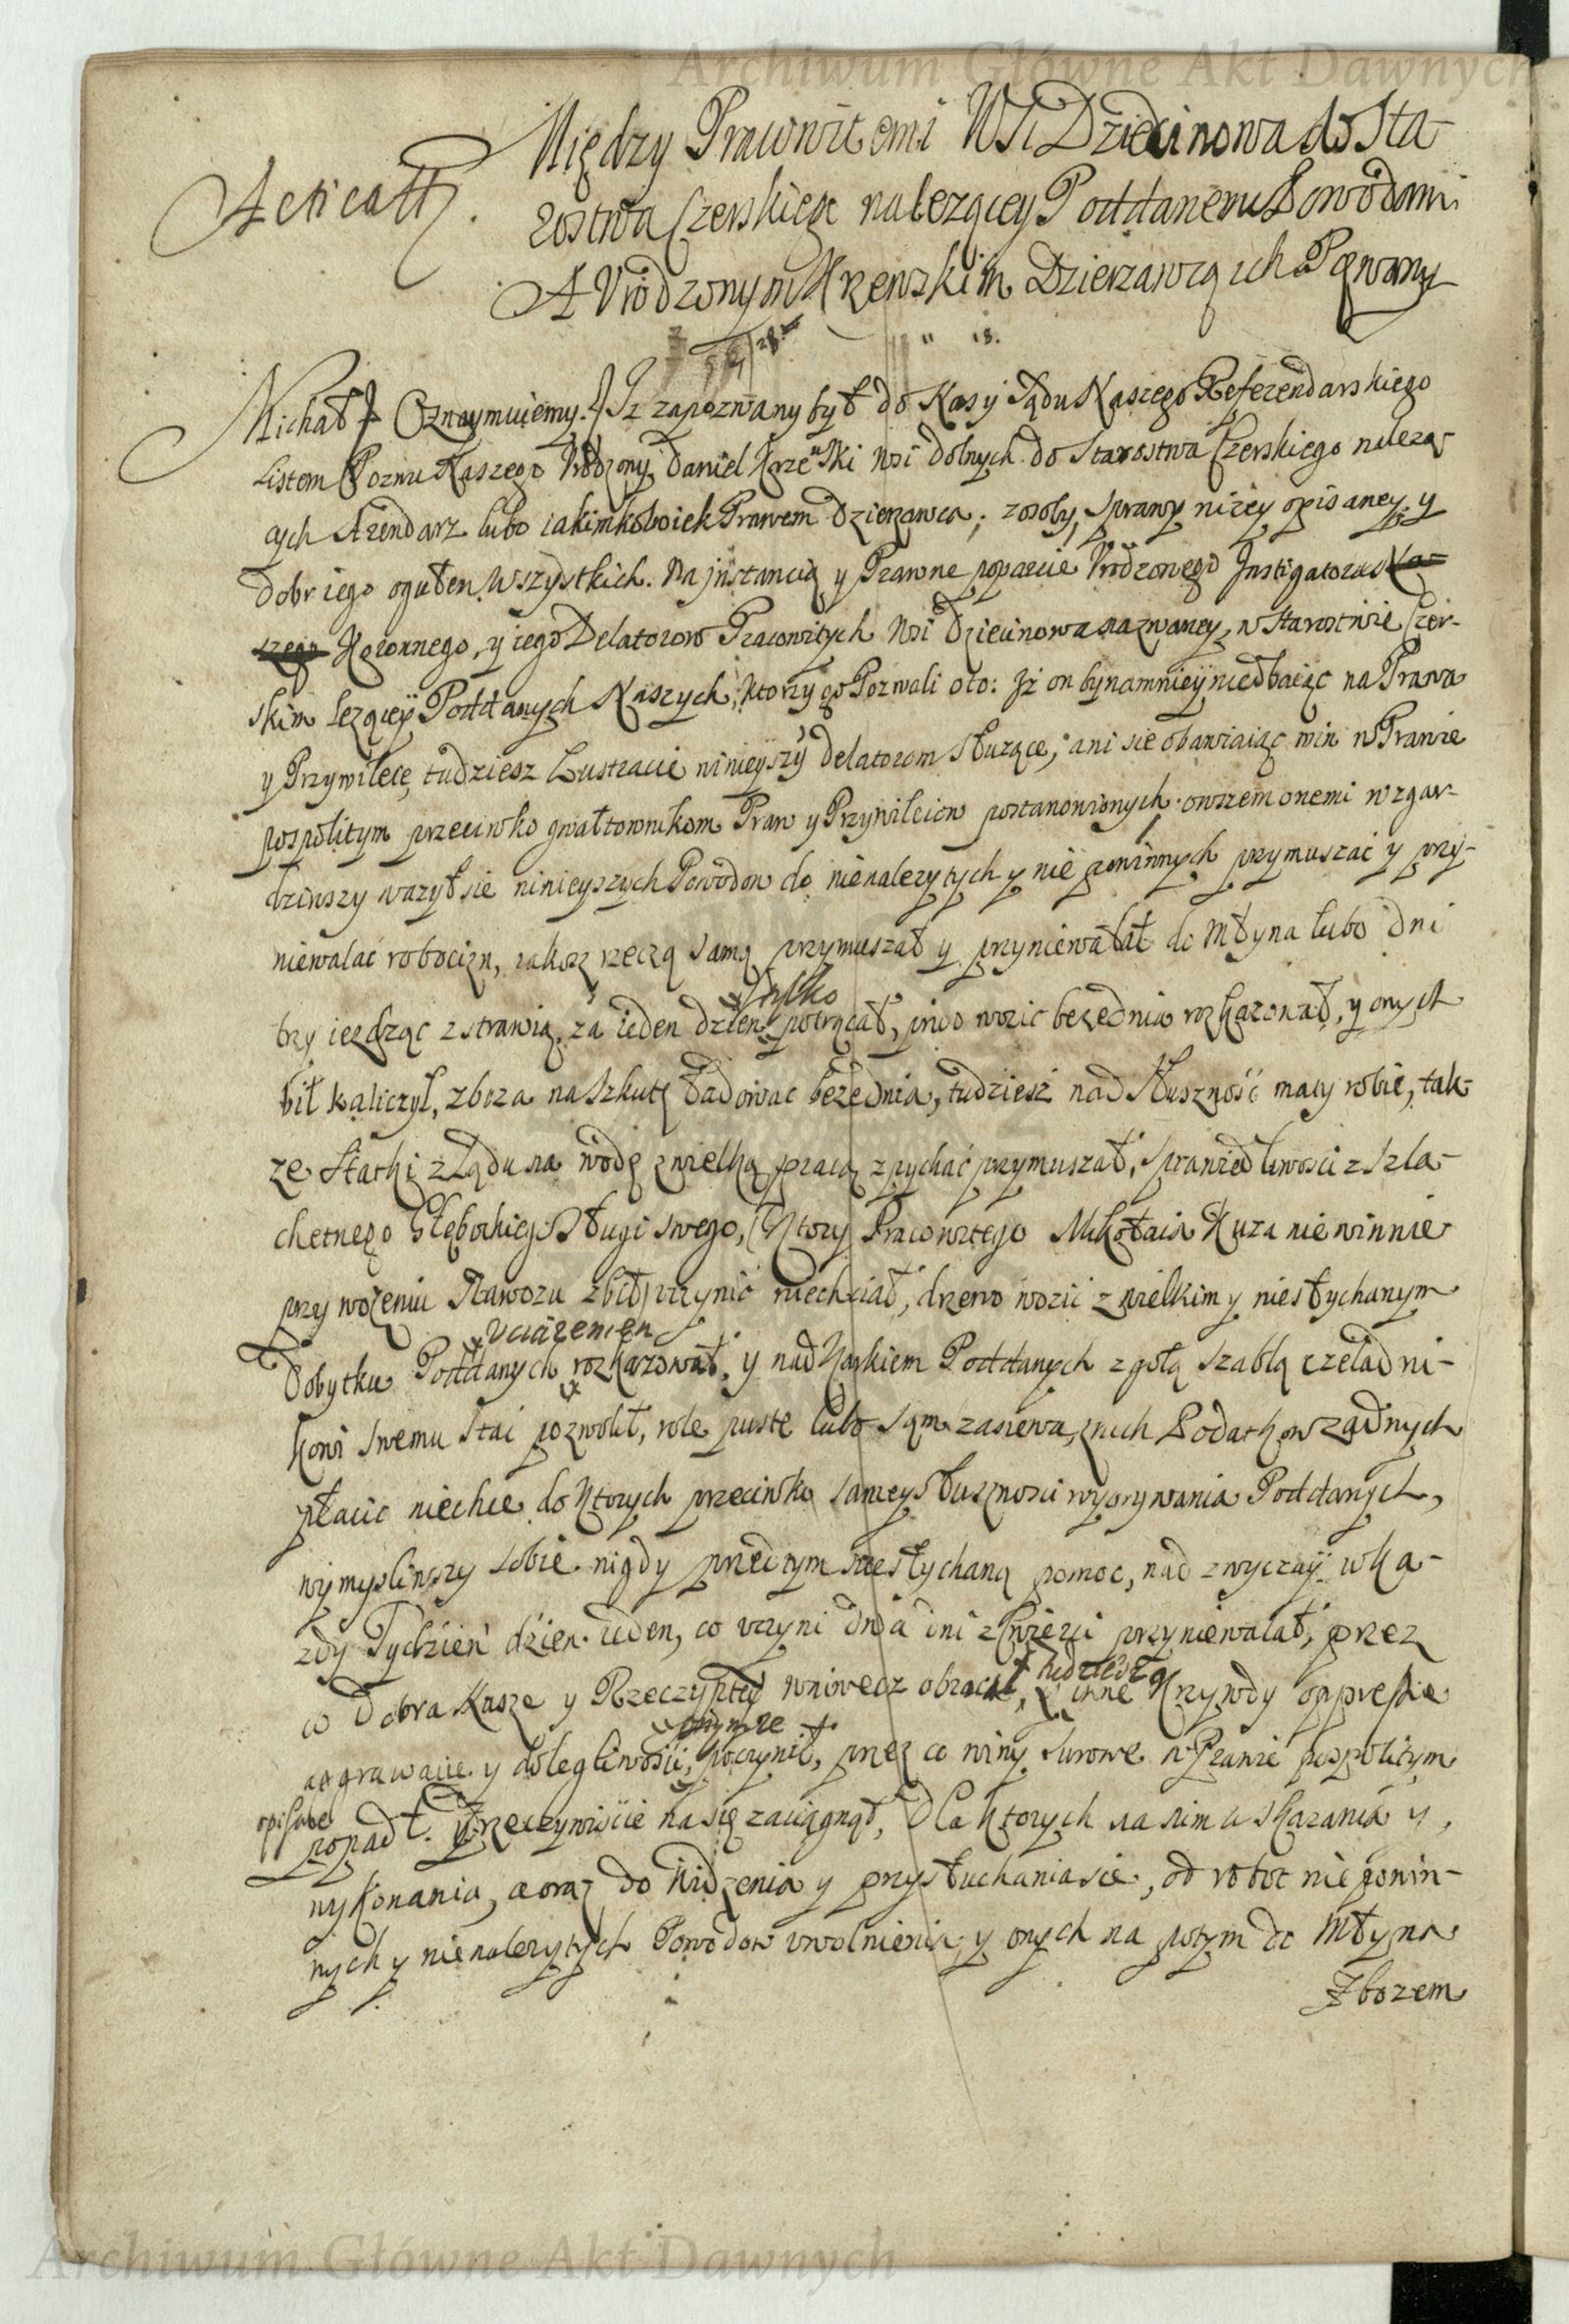 Archiwum Główne Akt Dawnych
Między Pracowitemi Wsi Dziecinowa do Sta-
rostwa Czerskiego nalezącey Poddanemi Powodami
Acticatt.
A Urodzonym Krzewskim Dzierzawcą ich Pozwany
Michał Oznaymuiemy. Iz zapozwany był do Nas y Sądu Naszego Referendarskiego
Listem Pozwu Naszego Urodzony Daniel Krzewski wsi dolnych do Starostwa Czerskiego nalezą-
cych Arendarz lubo iakimkolwiek Prawem Dzierzawca, z osoby, sprawy nizey opisaney y
dobr iego ogułem wszystkich. Na jnstancią y Prawne poparcie Urodzonego Jnstigatora Na-
szego Koronnego, y iego Delatorow Pracowitych wsi Dziecinowa nazwaney, w Starostwie Czer-
skim lezącey Poddanych Naszych, ktorzy go Pozwali oto: Iz on bynamniey niedbaiąc na Prawa
y Przywileie, tudziesz Lustracie ninieyszy Delatorom słuzące, ani sie obawiaiąc win w Prawie
pospolitym przeciwko gwałtownikom Praw y Przywileiow postanowionych. owszem onemi wzgar-
dziwszy wazył sie ninieyszych Powodow do nienalezytych y nie powinnych przymuszac y przy-
niewalac robocizn, iakosz rzeczą samą przymuszał y przyniewalał do Młyna lubo dni
trzy iezdząc z strawią, za ieden dzien tylko potrącał, piwo wozic bezednia rozkazował, y onych
bił kaliczył, zboza na Szkutę ładowac bezednia, tudziesz nad Słuszność maty robie, tak-
ze Statki z Lądu na wodę z wielką pracą zpychać przymuszał, sprawiedliwosci z Szla-
chetnego Głębockiego Sługi swego, (Ktory Pracowitego Mikołaia Kuza niewinnie
przy wozeniu Nawozu zbił) uczynić niechciał, drzewo wozić z wielkim y niesłychanym
Dobytku Poddanych uciązeniem rozkazował, y nad Karkiem Poddanych z gołą szablą czeladni-
kowi swemu stac pozwolił, role puste lubo sąm zasiewa, z nich Podatkow ządnych
płacic niechce do ktorych przeciwko samey słusznosci wyorywania Poddanych,
wymysliwszy sobie nigdy przedtym niesłychaną pomoc, nad zwyczay w ka-
zdy Tydzień dzien ieden, co uczyni dwa dni z cwierci przyniewalał, przez
co Dobra Nasze y Rzeczyptey wniwecz obracał, tudziesz inne Krzywdy oppressie
aggrawacie y dolegliwosci, onymze poczynił, przez co winy surowe w Prawie pospolitym
opisane popadł y rzeczywiscie na się zaciągnął, Dla ktorych na nim wskazania y
wykonania, a oraz do widzenia y przysłuchania sie, od robot nie powin-
nych y nienalezytych Powodow uwolnienia, y onych na potym do Młyna
Zbozem
Archiwum Główne Akt Dawnych